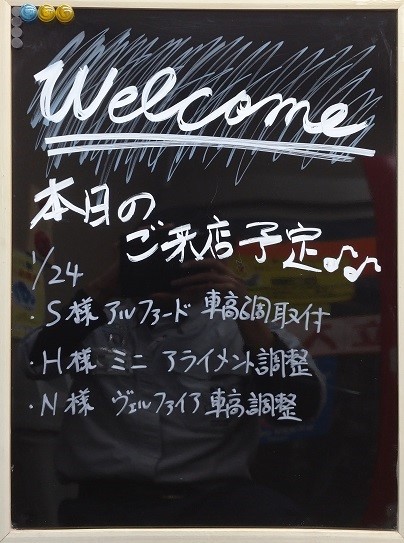 Welcome
本日の
ご来店予定♪♫
1/24
・S様 アルファード 車高調取付
・H様 ミニ アライメント調整
・N様 ヴェルファイア車高調整